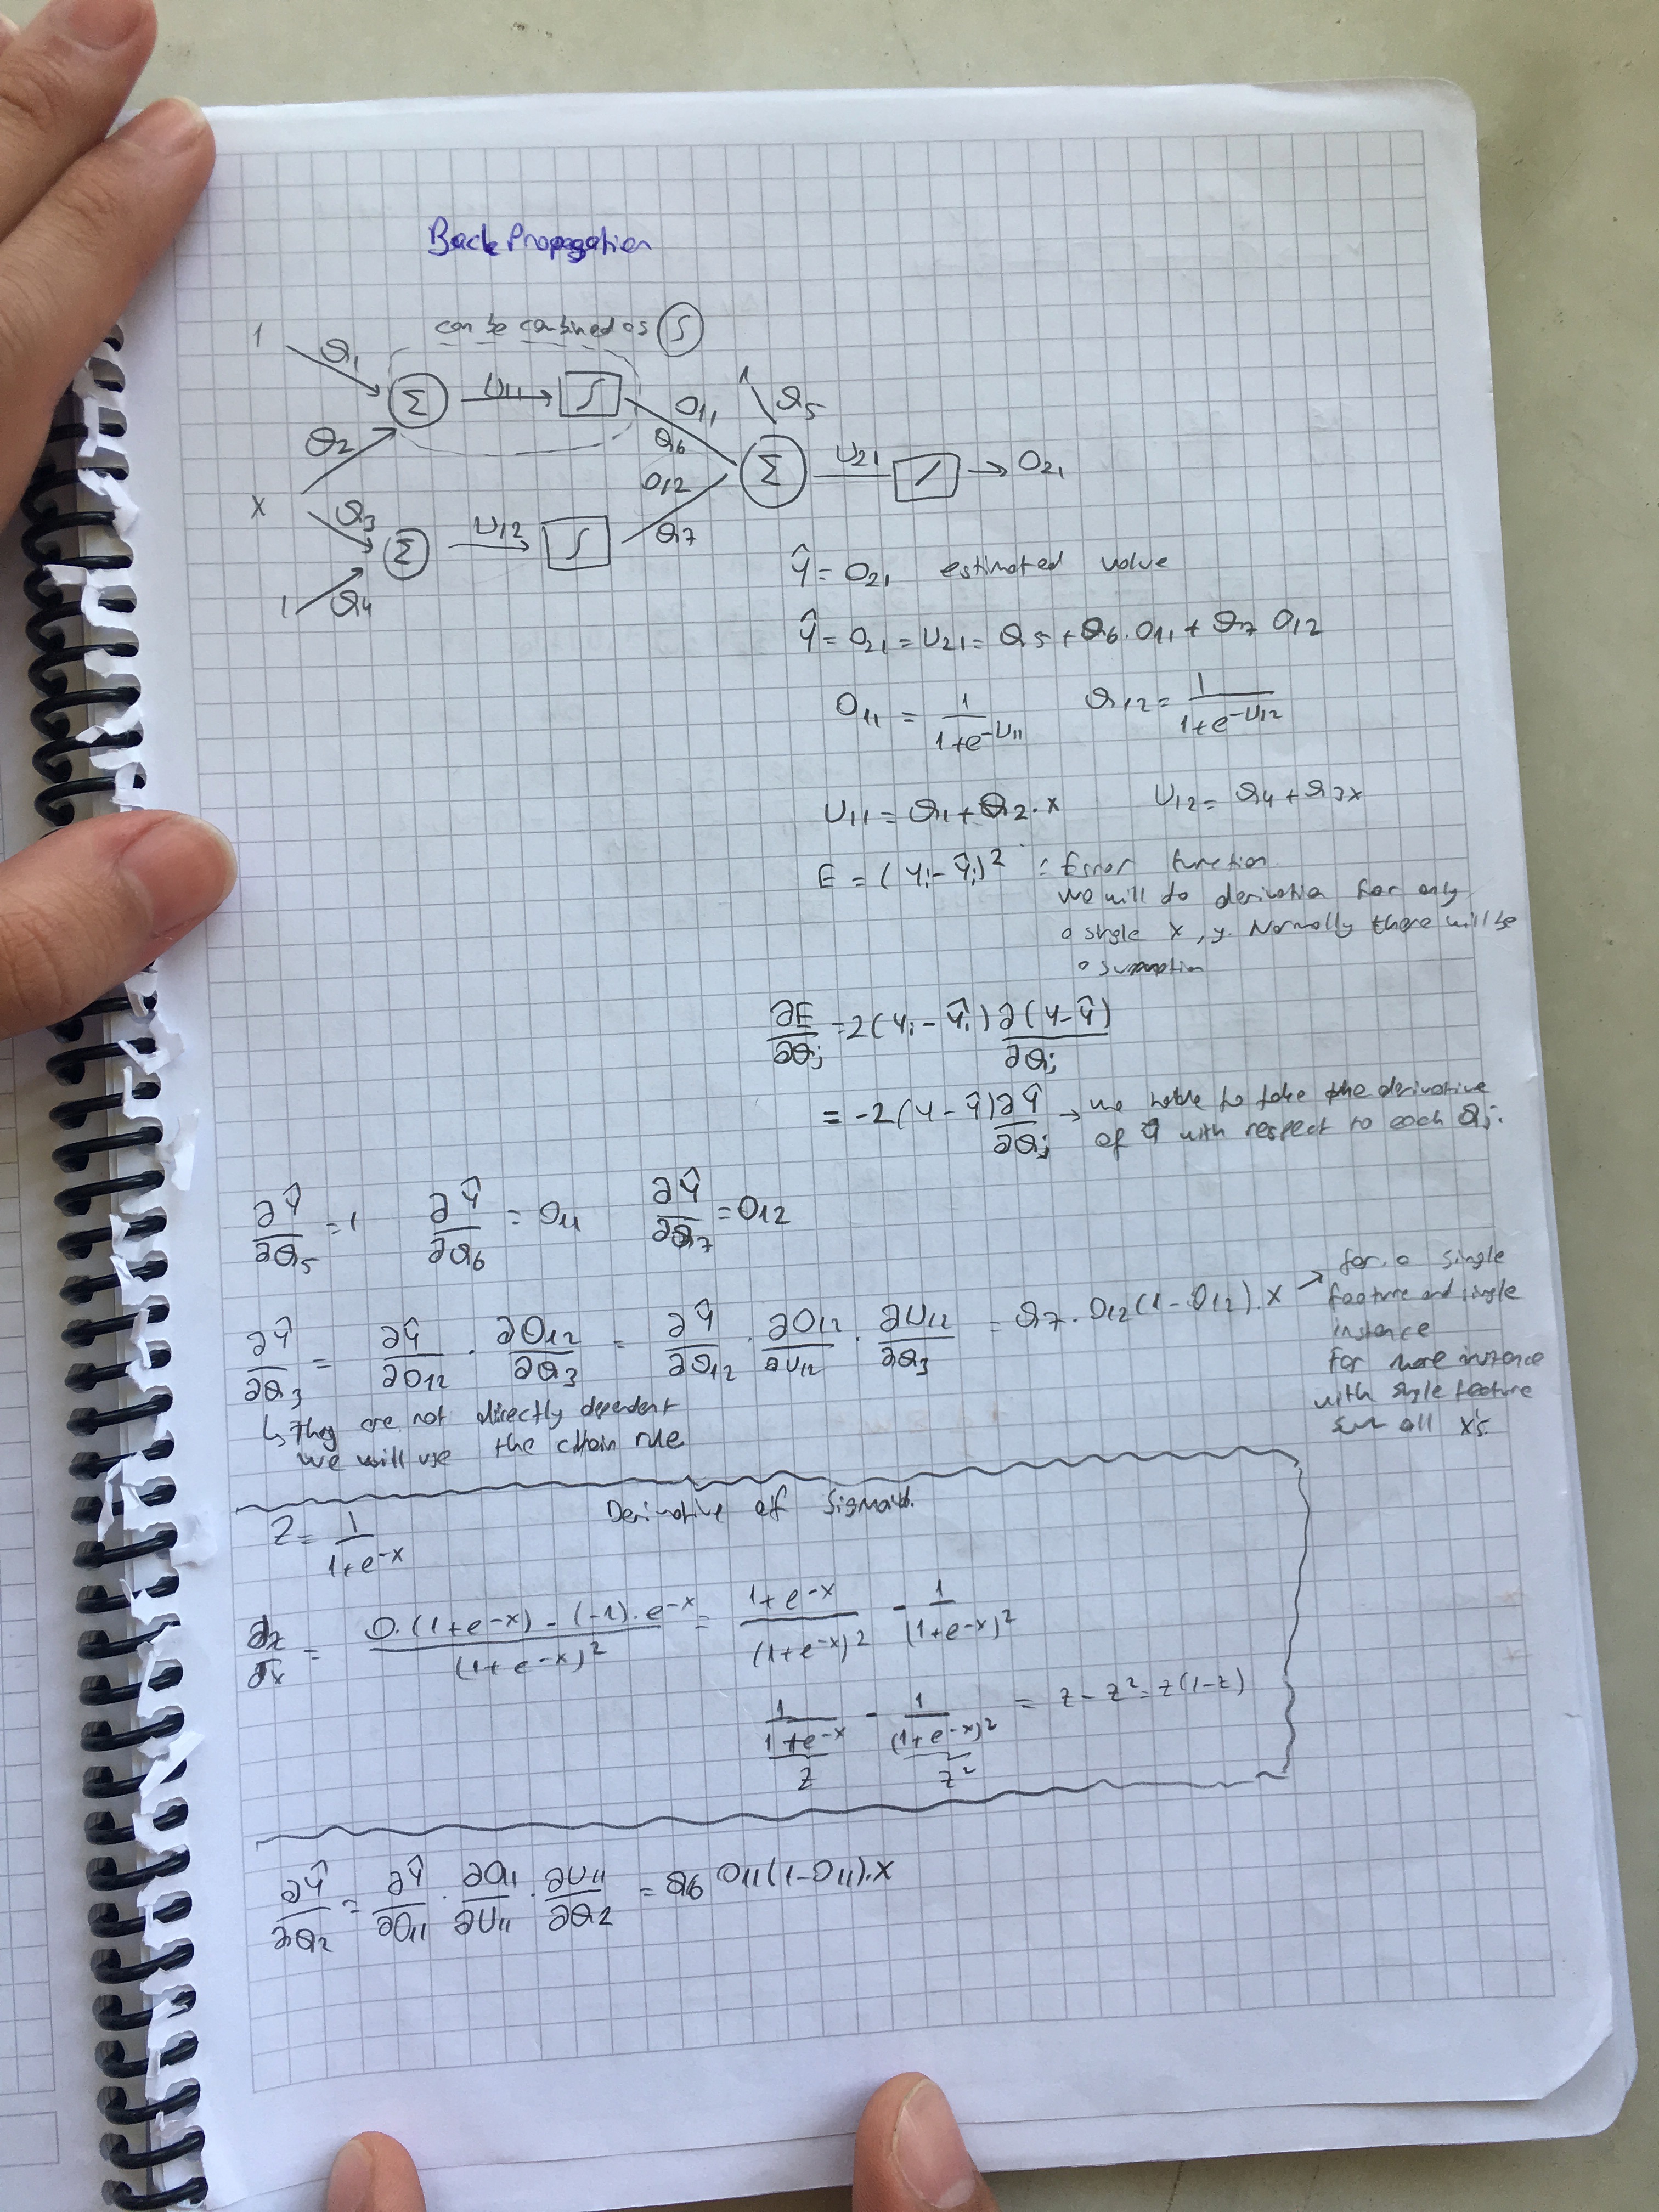 Back Propagation
can be combined as ∫
1 θ1 Σ U11 ∫ O11 1 θ5
θ2 θ6 Σ U21 / → O21
x θ3 Σ U12 ∫ O12 θ7
1 θ4
Ŷ = O21 estimated value
Ŷ = O21 = U21 = θ5 + θ6 . O11 + θ7 O12
O11 = 1/(1+e^-U11) θ12 = 1/(1+e^-U12)
U11 = θ1 + θ2 . x U12 = θ4 + θ3x
E = (Yi - Ŷi)² : Error function
we will do derivation for only
a single x, y. Normally there will be
a summation
∂E/∂θj = 2(Yi - Ŷi) ∂(Y-Ŷ)/∂θj
= -2(Y - Ŷ) ∂Ŷ/∂θj → we have to take the derivative
of Ŷ with respect to each θj.
∂Ŷ/∂θ5 = 1 ∂Ŷ/∂θ6 = O11 ∂Ŷ/∂θ7 = O12
∂Ŷ/∂θ3 = ∂Ŷ/∂O12 . ∂O12/∂θ3 = ∂Ŷ/∂O12 . ∂O12/∂U12 . ∂U12/∂θ3 = θ7 . O12(1 - O12) . x →
for a single
feature and single
instance
for more instence
with single feature
sum all x's.
↳ They are not directly dependent
we will use the chain rule
Derivative of Sigmoid.
Z = 1/(1+e^-x)
dz/dx = (0.(1+e^-x) - (-1).e^-x)/(1+e^-x)² = (1+e^-x)/(1+e^-x)² - 1/(1+e^-x)²
1/(1+e^-x) - 1/(1+e^-x)² = z - z² = z(1-z)
z z²
∂Ŷ/∂θ2 = ∂Ŷ/∂O11 . ∂O11/∂U11 . ∂U11/∂θ2 = θ6 O11(1-O11).x